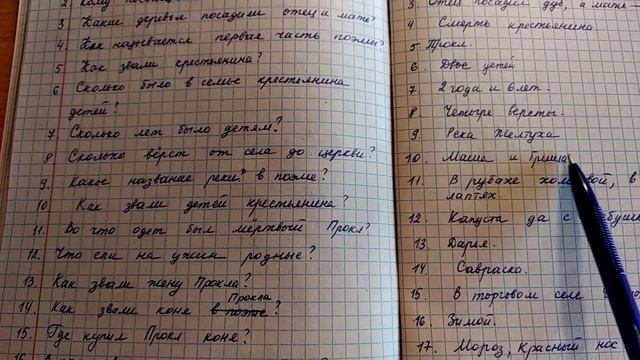 3 Какие деревья посадили отец и мать?
4. Как называется первая часть поэмы?
5 Как звали крестьянина?
6 Сколько было в семье крестьянина
детей?
7. Сколько лет было детям?
8 Сколько вёрст от села до церкви?
9. Какое название реки в поэме?
10 Как звали детей крестьянина?
11. Во что одет был мёртвый Прокл?
12. Что ели на ужин родные?
13. Как звали жену Прокла?
14. Как звали коне Прокла?
15. Где купил Прокл коне?
3. Отец посадил дуб, а мать
4 Смерть крестьянина
5 Прокл.
6. Двое детей
7 2 года и 6 лет.
8. Четыре версты.
9. Река Желтуха
10. Маша и Гриша
11. В рубахе в
лаптях.
12. Капуста да с
13. Дарья.
14. Савраска.
15. В торговом селе
16 Зимой.
17. Мороз, Красный нос